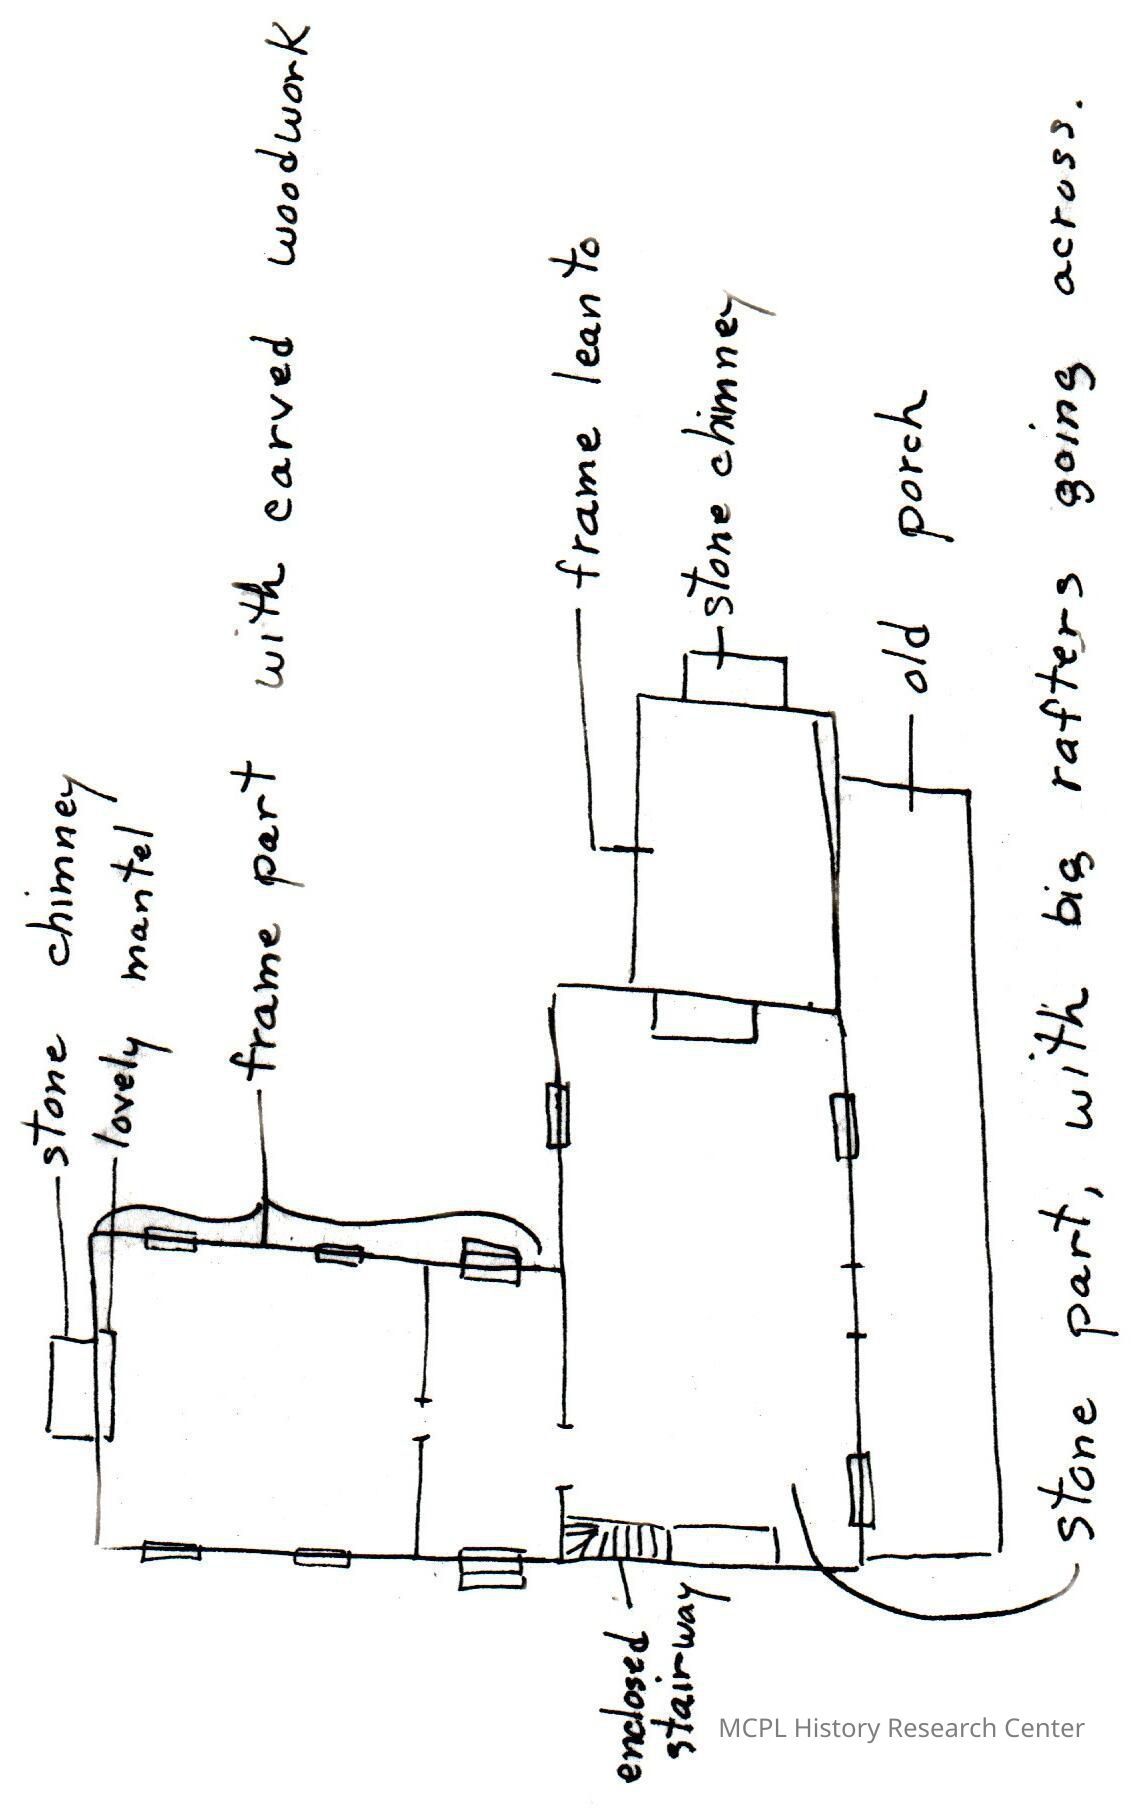 stone chimney
lovely mantel
frame part with carved woodwork
frame lean to
stone chimney
old porch
enclosed
stairway
stone part, with big rafters going across.
MCPL History Research Center